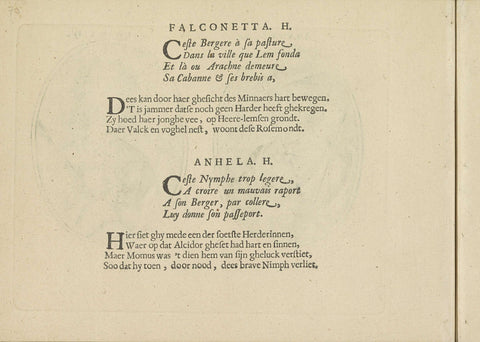 FALCONETTA. H.
Ceste Bergere à sa pasture,
Dans la ville que Lem fonda
Et là ou Arachne demeure,
Sa Cabanne & ses brebis a,
Dees kan door haer ghesicht des Minnaers hart bewegen.
'T is jammer datse noch geen Harder heeft ghekregen.
Zy hoed haer jonghe vee, op Heere-lemsen grondt.
Daer Valck en voghel nest, woont dese Rosemondt.
ANHELA. H.
Ceste Nymphe trop legere,
A croire un mauvais raport
A son Berger, par collere,
Luy donne son passeport.
Hier siet ghy mede een der soetste Herderinnen,
Waer op dat Alcidor gheset had hart en sinnen,
Maer Momus was 't dien hem van sijn gheluck verstiet,
Soo dat hy toen, door nood, dees brave Nimph verliet.